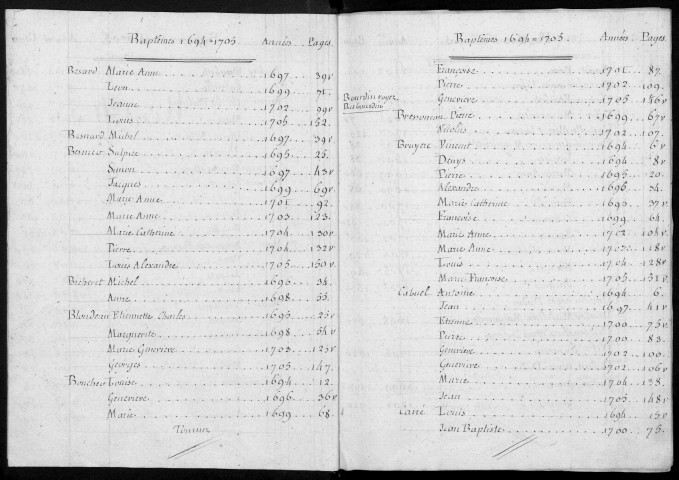 Baptêmes 1694=1705. Années. Pages.
Besard Marie Anne 1697. 39v
Leon 1699. 71.
Jeanne 1702. 99v
Louis 1705. 152.
Besnard Michel 1697. 39v
Besnier Sulpice 1695. 25.
Simon 1697. 43v
Jacques 1699. 69v
Marie Anne 1701. 92.
Marie Anne 1703. 123.
Marie Catherine 1704. 130v
Pierre 1704. 132v
Louis Alexandre 1705. 150v
Bicheret Michel 1696. 34.
Anne 1698. 55.
Blondeau Etiennette Charles 1695. 25v
Marguerite 1698. 54v
Marie Genevieve 1703. 125v
Georges 1705. 147.
Boucher Louise 1694. 12.
Genevieve 1696. 36v
Marie 1699. 68.
Baptêmes 1694=1705. Années. Pages.
Françoise 1701. 87.
Pierre 1702. 109.
Bourdin voyez
Genevieve 1705. 146v
Pierre 1699. 67v
Nicolas 1702. 107.
Bruyere Vincent 1694. 6v
Denys 1694. 8v
Pierre 1695. 20.
Alexandre 1696. 34.
Marie Catherine 1696. 37v
Françoise 1699. 64.
Marie Anne 1702. 104v
Marie Anne 118v
Louis 1704. 128v
Marie Françoise 1705. 151v
Cabuel Antoine 1694. 6.
Jean 1697. 41v
Etienne 1700. 75v
Pierre 1700. 83.
Genevieve 1702. 100.
Genevieve 1702. 106v
Marie 1704. 138.
Jean 1705. 148v
Carré Louis 1694. 15v
Jean Baptiste 1700. 75.